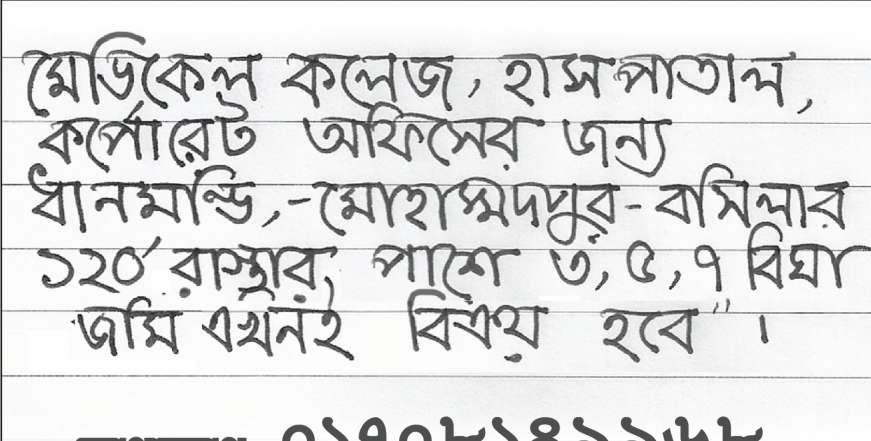 মেডিকেল কলেজ, হাসপাতাল,
কর্পোরেট অফিসের জন্য
ধানমন্ডি,-মোহাম্মদপুর-বসিলার
১২০′ রাস্থার, পাশে ৩, ৫, ৭ বিঘা
জমি এখনই বিক্রয় হবে" ।